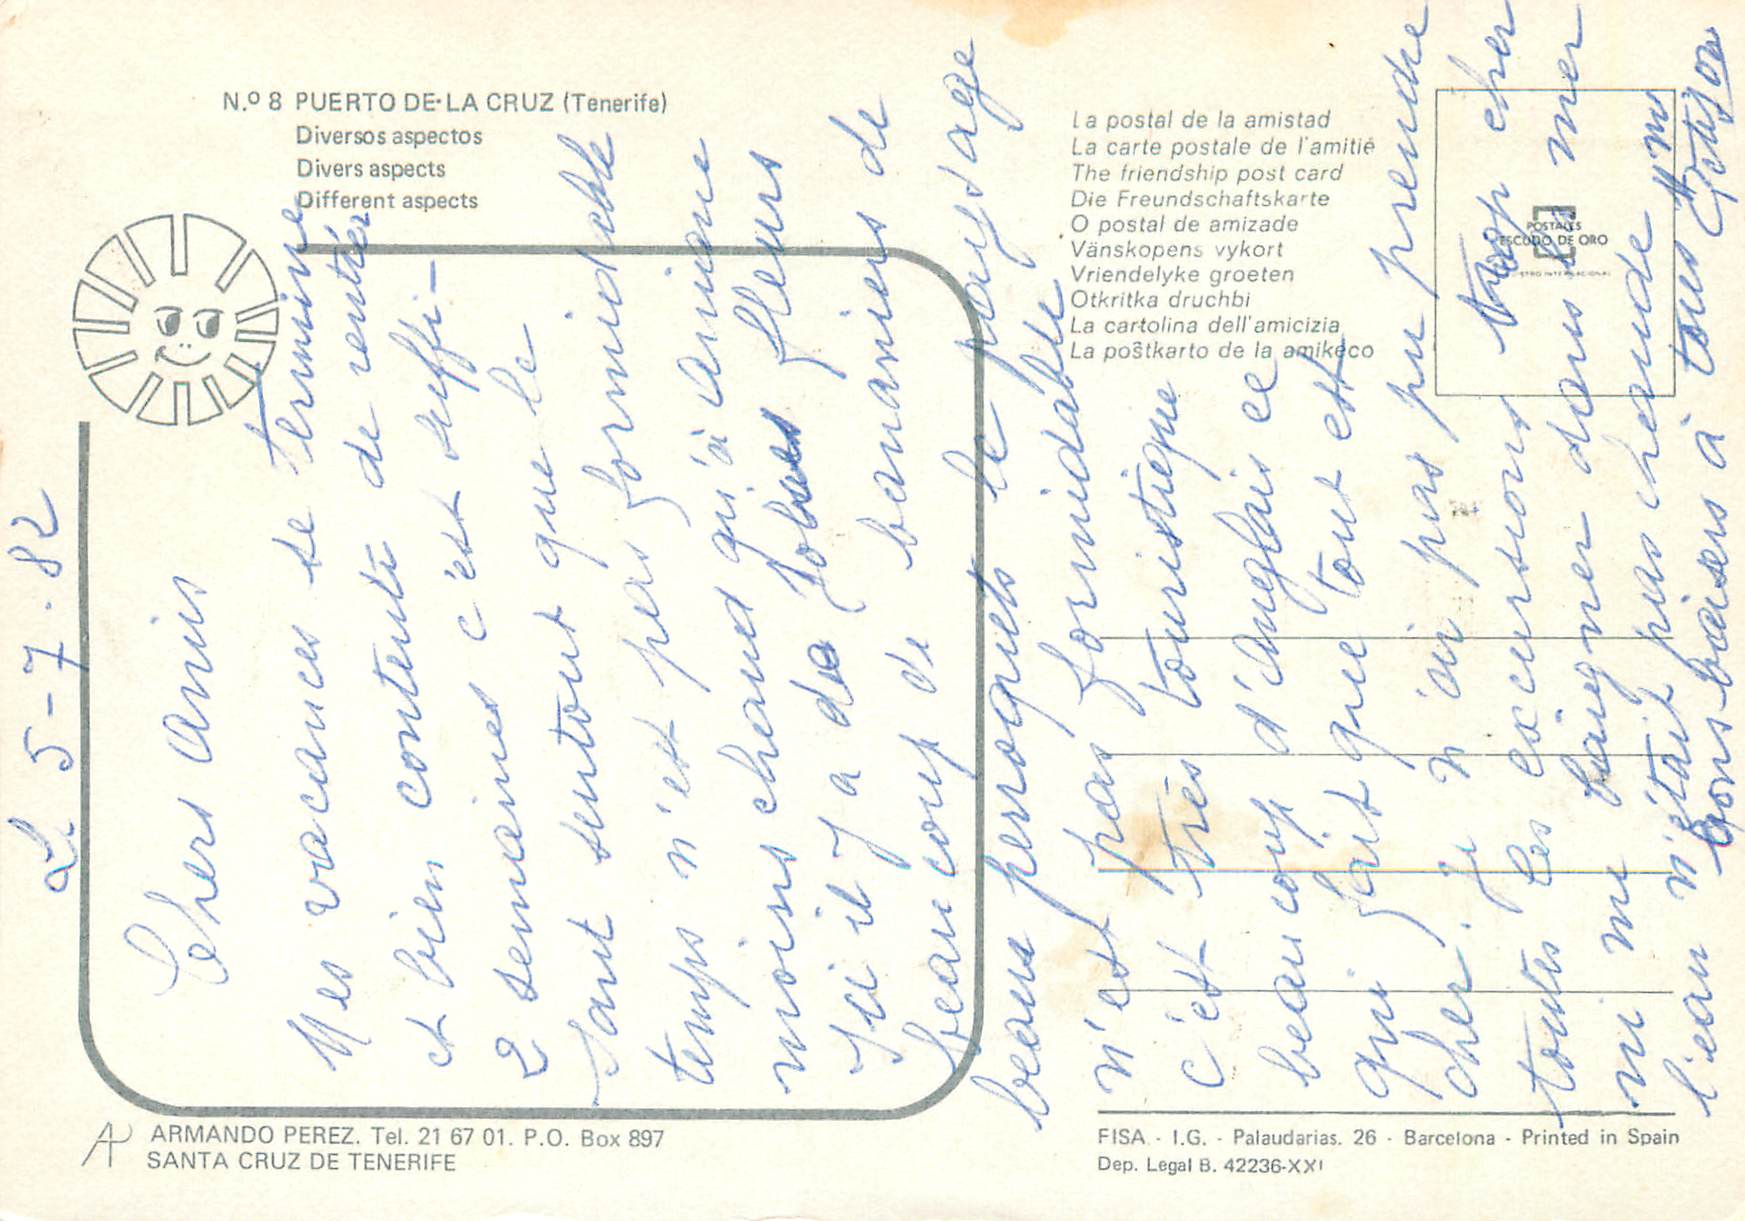 N.º 8 PUERTO DE LA CRUZ (Tenerife)
Diversos aspectos
Divers aspects
Different aspects
La postal de la amistad
La carte postale de l'amitié
The friendship post card
Die Freundschaftskarte
O postal de amizade
Vänskopens vykort
Vriendelyke groeten
Otkritka druchbi
La cartolina dell'amicizia
La poŝtkarto de la amikeco
POSTALES
ESCUDO DE ORO
Le 5-7-82
Chers Amis
Mes vacances se termine
et bien contente de rentrer
2 semaines c'est suffi-
sant surtout que le
temps n'est pas formidable
moins chaud qu'à Amiane
Ici il y a de jolies fleurs
beaucoup de bananiers de
beaux perroquets le paysage
n'est pas formidable
c'est très touristique
beaucoup d'Anglais ce
qui fait que tout est
cher. Je n'ai pas pu prendre
toutes les excursions trop cher
ni me baigner dans la mer
l'eau n'était pas chaude
bons baisers à tous
ARMANDO PEREZ. Tel. 21 67 01. P.O. Box 897
SANTA CRUZ DE TENERIFE
FISA - I.G. - Palaudarias. 26 - Barcelona - Printed in Spain
Dep. Legal B. 42236-XXI